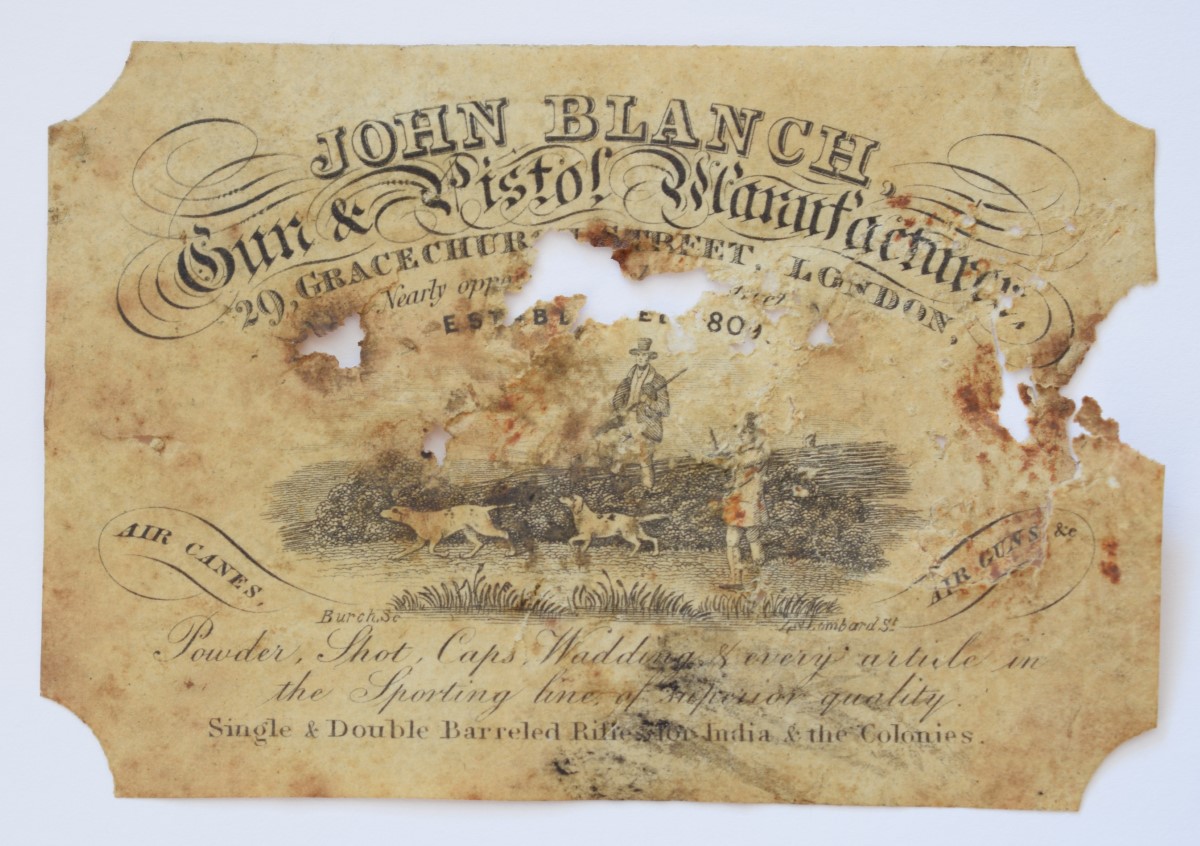 JOHN BLANCH,
Gun & Pistol Manufacturer
29, GRACECHURCH STREET, LONDON,
Nearly
AIR CANES,
AIR GUNS &c
Burch. Sc
Lombard St
Powder, Shot, Caps, Wadding & every article in
the Sporting line, of superior quality.
Single & Double Barreled Rifles for India & the Colonies.